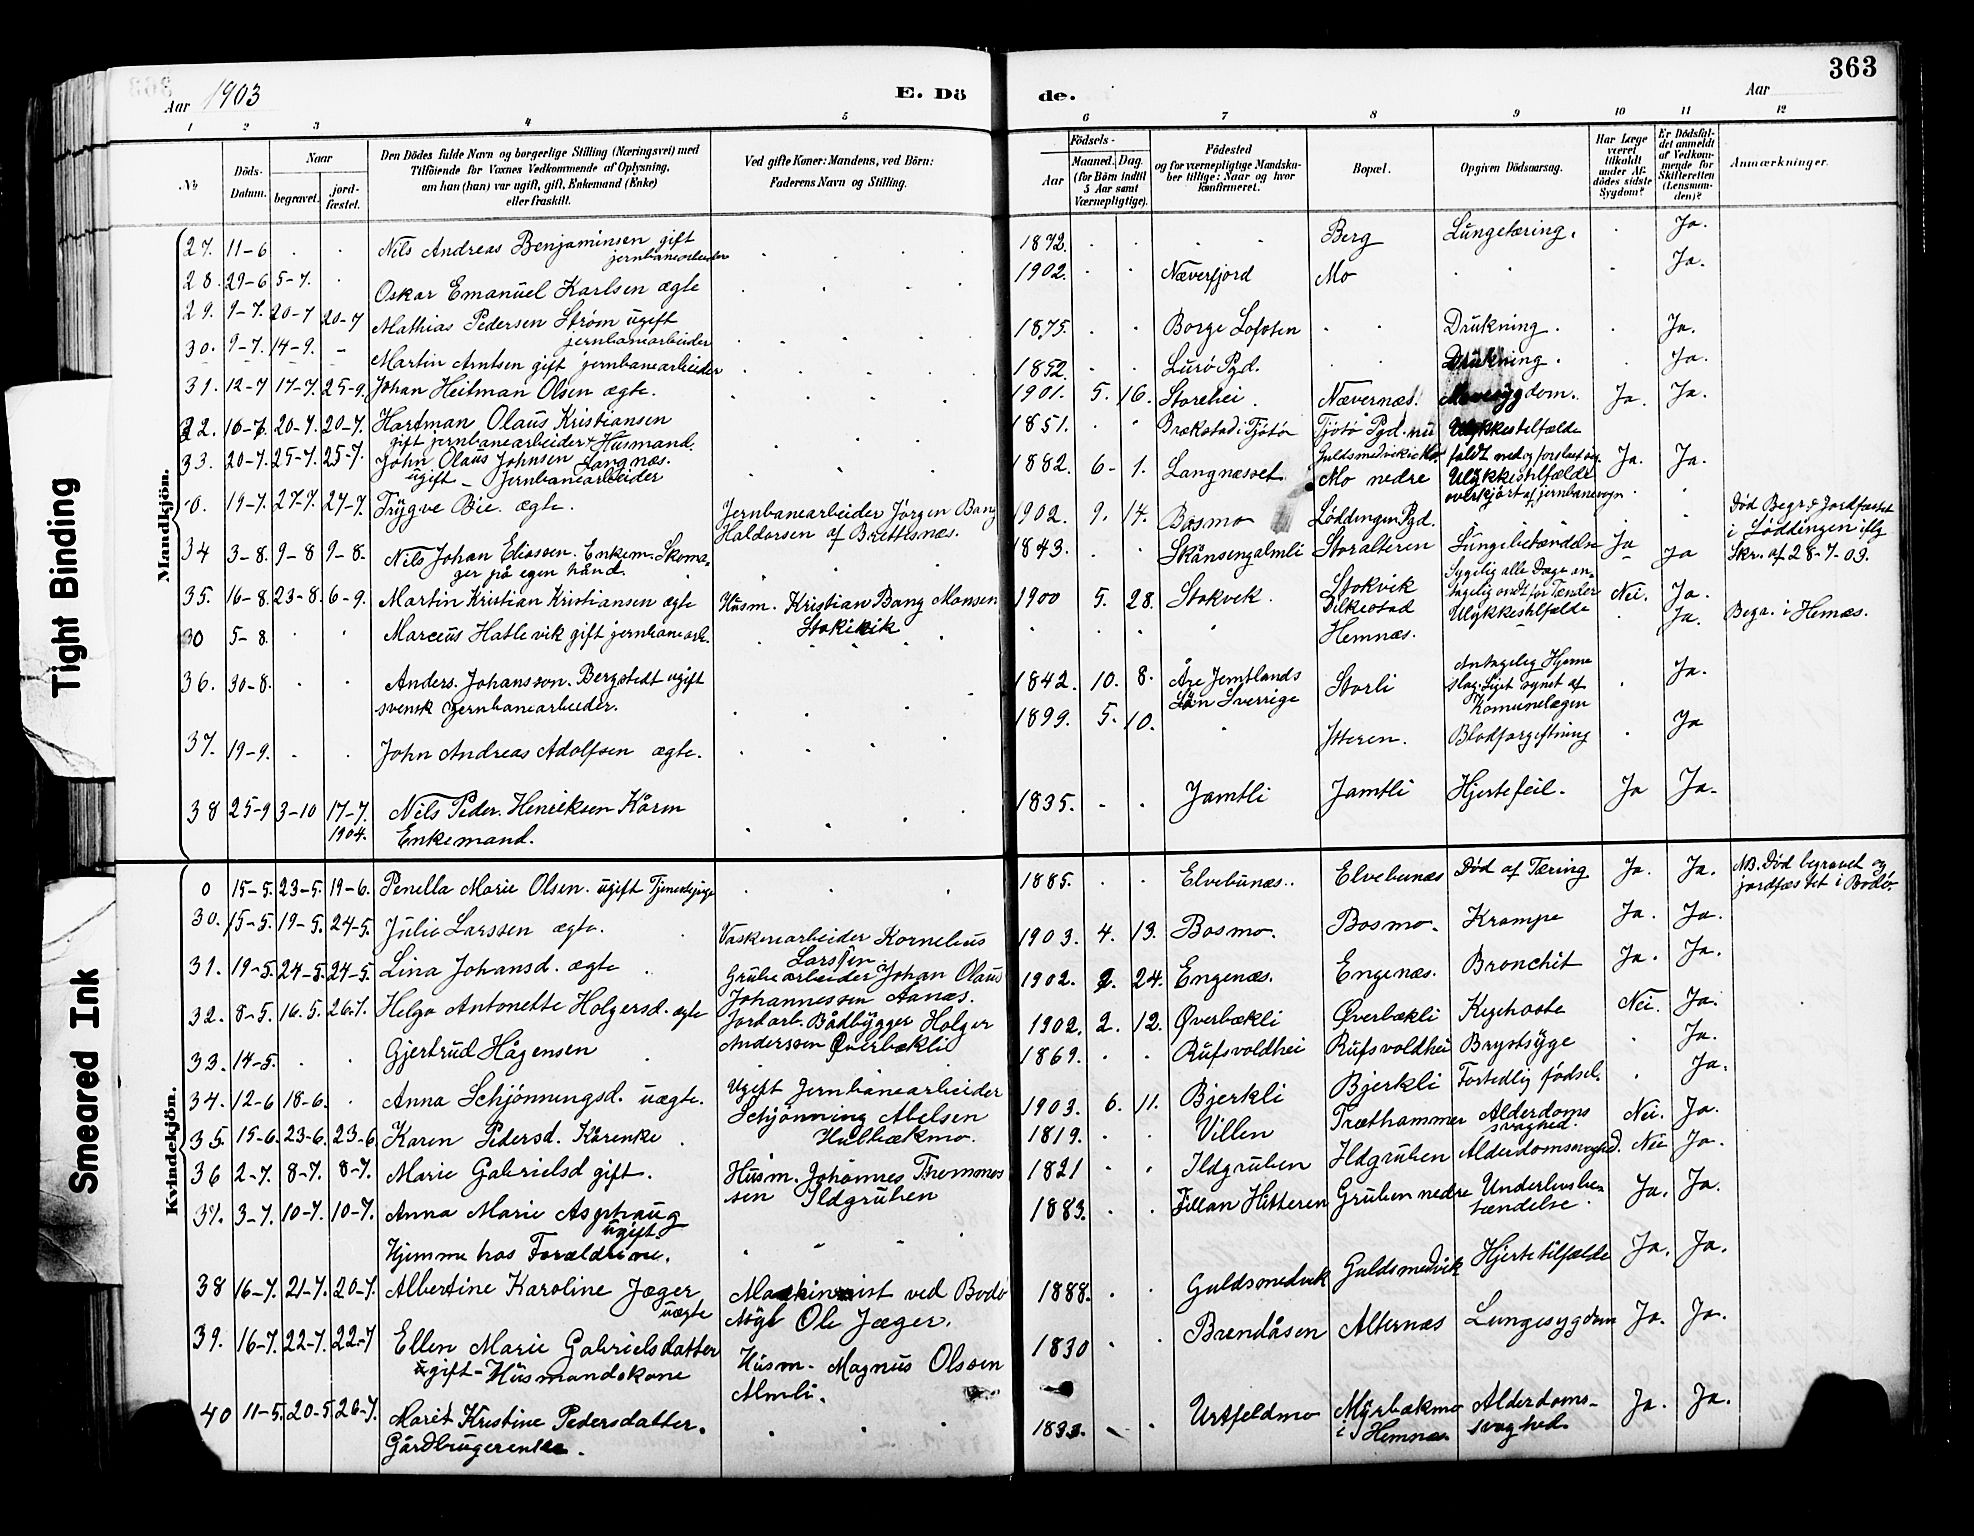 363
Aar 1903
E. Dö
de.
Aar
1 2 3 4 5 6 7 8 9 10 11 12
No
Döds-Datum.
Naar
begravet.
jord-fæstet.
Den Dödes fulde Navn og borgerlige Stilling (Næringsvei) med
Tilföiende for Voxnes Vedkommende af Oplysning,
om han (hun) var ugift, gift, Enkemand (Enke)
eller fraskilt.
Ved gifte Koner: Mandens, ved Börn:
Faderens Navn og Stilling.
Födsels-
Aar
Maaned. Dag.
(for Börn indtil
5 Aar samt
Værnepligtige).
Födested
og for værnepligtige Mandska-
ber tillige: Naar og hvor
konfirmeret.
Bopæl.
Opgiven Dödsaarsag.
Har Læge
været
tilkaldt
under Af-
dödes sidste
Sygdom?
Er Dödsfal-
det anmeldt
af Vedkom-
mende for
Skifteretten
(Lensman-
den)?
Anmærkninger.
Mandkjön.
27. 11-6 . . Nils Andreas Benjaminsen gift
jernbanearbeider
1872. . . . Berg Lungetæring. . Ja.
28. 29-6 5-7. . Oskar Emanuel Karlsen ægte
1902. . . Næverfjord Mo . . Ja.
29. 9-7. 20-7 20-7 Mathias Pedersen Strøm ugift
jernbanearbeider
1875. . . Borge Lofoten . . Drukning. . Ja.
30. 9-7. 14-9. - Martin Arntsen gift jernbanearbeider
1852. . . Lurø Pgd. . Drukning. . Ja.
31. 12-7 17-7. 25-9. Johan Heitman Olsen ægte.
1901. 5. 16. Storehei. Nævernæs. Mavesygdom. Ja. Ja.
32. 16-7. 20-7. 20-7. Hartman Olaus Kristiansen
gift jernbanearbeider & Husmand.
1851. . . Brækstad i Tjøtø Tjøtø Pgd. nu Ulykkestilfælde
33. 20-7. 25-7. 25-7. John Olaus Johnsen Langnæs.
ugift - Jernbanearbeider
1882. 6- 1. Langnæsset Mo nedre Ulykkestilfælde Ja. Ja.
overkjørt af jernbanevogn.
0. 19-7. 27-7. 27-7. Trygve Bie. ægte. Jernbanearbeider Jörgen Bang
Haldorsen af Brettesnæs.
1902. 9. 14. Bosmo Løddingen Pgd. . . Død Begr. & Jordfæstet
i Løddingen iflg
Skr. af 28-7-03.
34 3-8. 9-8 9-8. Nils Johan Eliassen. Enkem. Skoma-
ger på egen hånd.
1843. . . Skånsengalmli Storalteren Lungebetændelse Ja Ja
35. 16-8. 23-8. 6-9. Martin Kristian Kristiansen ægte Husm. Kristian Bang Monsen
Stokvik
1900 5. 28. Stokvik. Stokvik Sygelig alle Dage an-
tagelig ondt for Tænder Nei. Ja.
0 5-8. . . Marcus Hatlevik gift jernbanearb.
Hemnæs. Ulykkestilfælde Ja. Begr. i Hemnæs.
36. 30-8. . . Anders. Johansson. Bergstedt ugift
svensk jernbanearbeider.
1842. 10. 8. Åre Jemtlands
Län Sverrige Storli Antagelig Hjerne
slag. Liget synet af
Komunelægen . Ja.
37. 19-9. . . John Andreas Adolfsen ægte.
1899. 5. 10. . Ytteren. Blodforgiftning . Ja
38 25-9 3-10 17-7.
1904. Nils Peder. Henriksen Kåren
Enkemand.
1835. . . Jamtli Jamtli Hjertefeil. Ja Ja.
Kvindekjön.
0 15-5. 23-5. 19-6. Penella Marie Olsen. ugift Tjenestepige
1885. . . Elvebunæs. Elvebunæs Død af Tæring Ja. Ja. NB. Død begravet og
jordfæstet i Bodø.
30. 15-5. 19-5. 24-5. Julie Larssen ægte. Vaskeriarbeider Kornelius
Larssen.
1903. 4. 13. Bosmo. Bosmo. Krampe Ja. Ja.
31. 19-5. 24-5. 24-5. Lina Johansd. ægte Grubearbeider Johan Olaus
Johannessen Aanæs.
1902. 2. 24. Engenæs. Engenæs. Bronchit Ja. Ja.
32. 8-5. 16-5. 26-7. Helga Antonette Holgersd. ægte Jordarb. Bådbygger Holger
Anderssen Øverbækli
1902. 2. 12. Øverbækli Øverbækli Kighoste Nei. Ja.
33. 14-5. . . Gjertrud Hågensen
1869. . . Rufsvoldhei Rufsvoldhei Brystsyge . Ja.
34. 12-6 18-6. . Anna Schjønningsd. uægte. Ugift Jernbanearbeider
Schjønning Abelsen
Hulbækmo.
1903. 6. 11. Bjerkli Bjerkli Fortedlig fødsel. . Ja.
35. 15-6. 23-6. 23-6 Karen Pedersd. Kårenke.
1819. . . Villen Træthammer Alderdoms
svaghed. Nei. Ja.
36 2-7. 8-7. 8-7. Marie Gabrielsd gift. Husm. Johannes Thommes
sen Ildgruben
1821 . . Ildgruben Ildgruben Alderdomssvaghed. Nei Ja.
37. 3-7. 10-7. 10-7. Anna Marie Asphaug
ugift.
Hjemme hos Forældrene.
1883. . . Fillan Hitteren Gruben nedre Underlivsbe-
tændelse. Ja. Ja.
38 16-7. 21-7. 20-7. Albertine Karoline Jæger
uægte Maskinist ved Bodø
Ole Jæger.
1888. . . Guldsmedvik Guldsmedvik Hjertetilfælde Ja. Ja.
39. 16-7. 22-7. 22-7 Ellen Marie Gabrielsdatter
gift - Husmandskone Husm. Magnus Olssen
Almli.
1830 . . Brendåsen Alternæs Lungesygdom Ja. Ja.
40 11-5. 20-5. 26-7. Marit Kristine Pedersdatter.
Gårdbrugerenke.
1833. . . Urtfeldmo Myrbækmo
i Hemnæs. Alderdoms-
svaghed. Ja. Ja.
Tight Binding
Smeared Ink